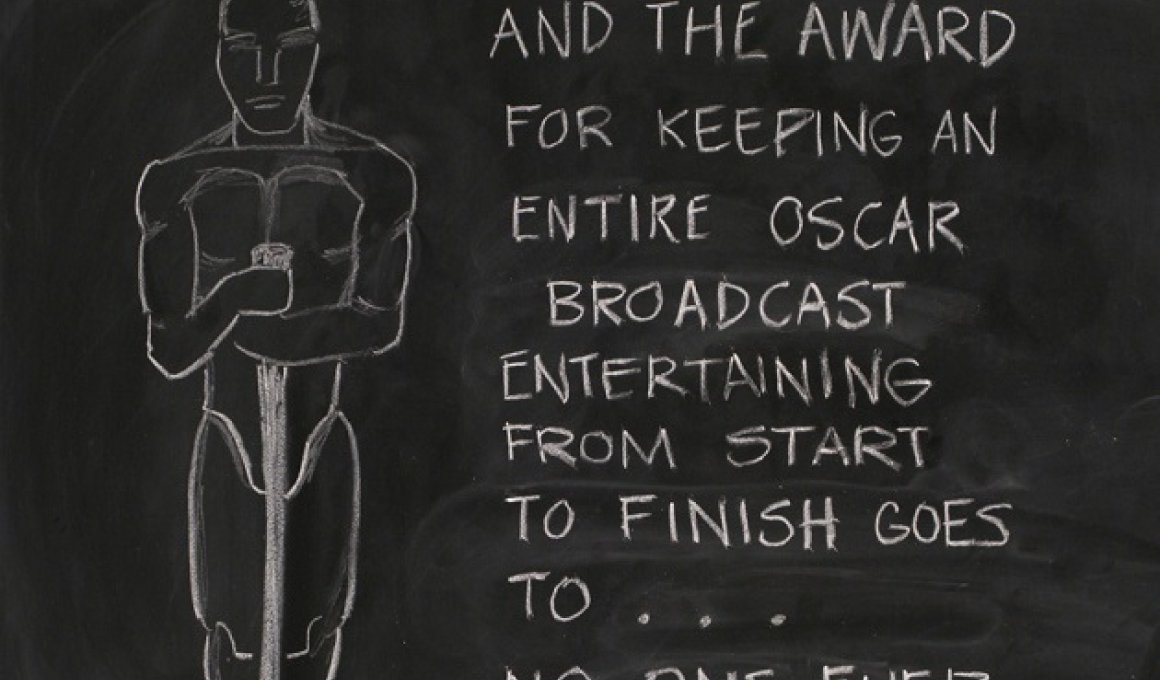 AND THE AWARD
FOR KEEPING AN
ENTIRE OSCAR
BROADCAST
ENTERTAINING
FROM START
TO FINISH GOES
TO . . .
NO ONE EVER